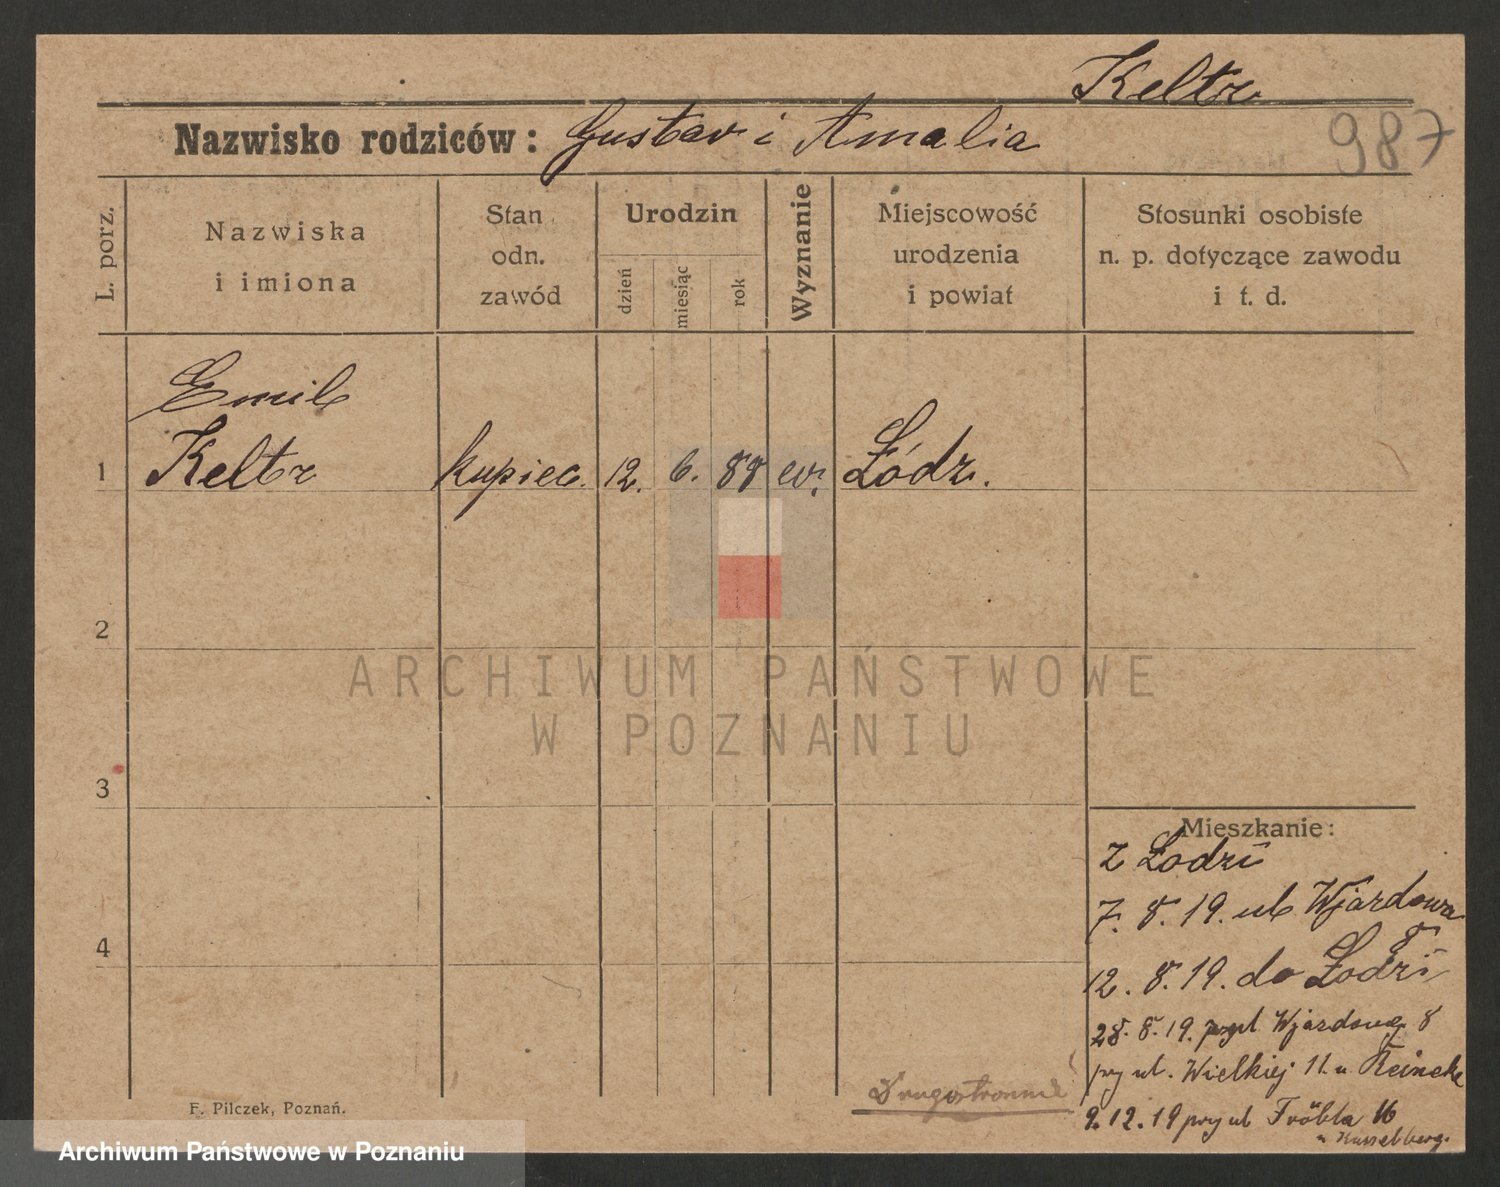 Keltz
Nazwisko rodziców: Gustav i Amalia
987
L. porz.
Nazwiska
i imiona
Stan
odn.
zawód
Urodzin
dzień
miesiąc
rok
Wyznanie
Miejscowość
urodzenia
i powiat
Stosunki osobiste
n. p. dotyczące zawodu
i t. d.
Emil
1 Keltz kupiec. 12. 6. 88 ev. Łódz.
2
ARCHIWUM PAŃSTWOWE
W POZNANIU
3
Mieszkanie:
z Łodzi
7. 8. 19. ul Wjazdowa
8
4
12. 8. 19. do Łodzi
28. 8. 19. Wjazdowa 8
przy ul. Wielkiej 11. u Reineke
9. 12. 19 przy ul Fröbla 16
u
Drugostronnie
F. Pilczek, Poznań.
Archiwum Państwowe w Poznaniu